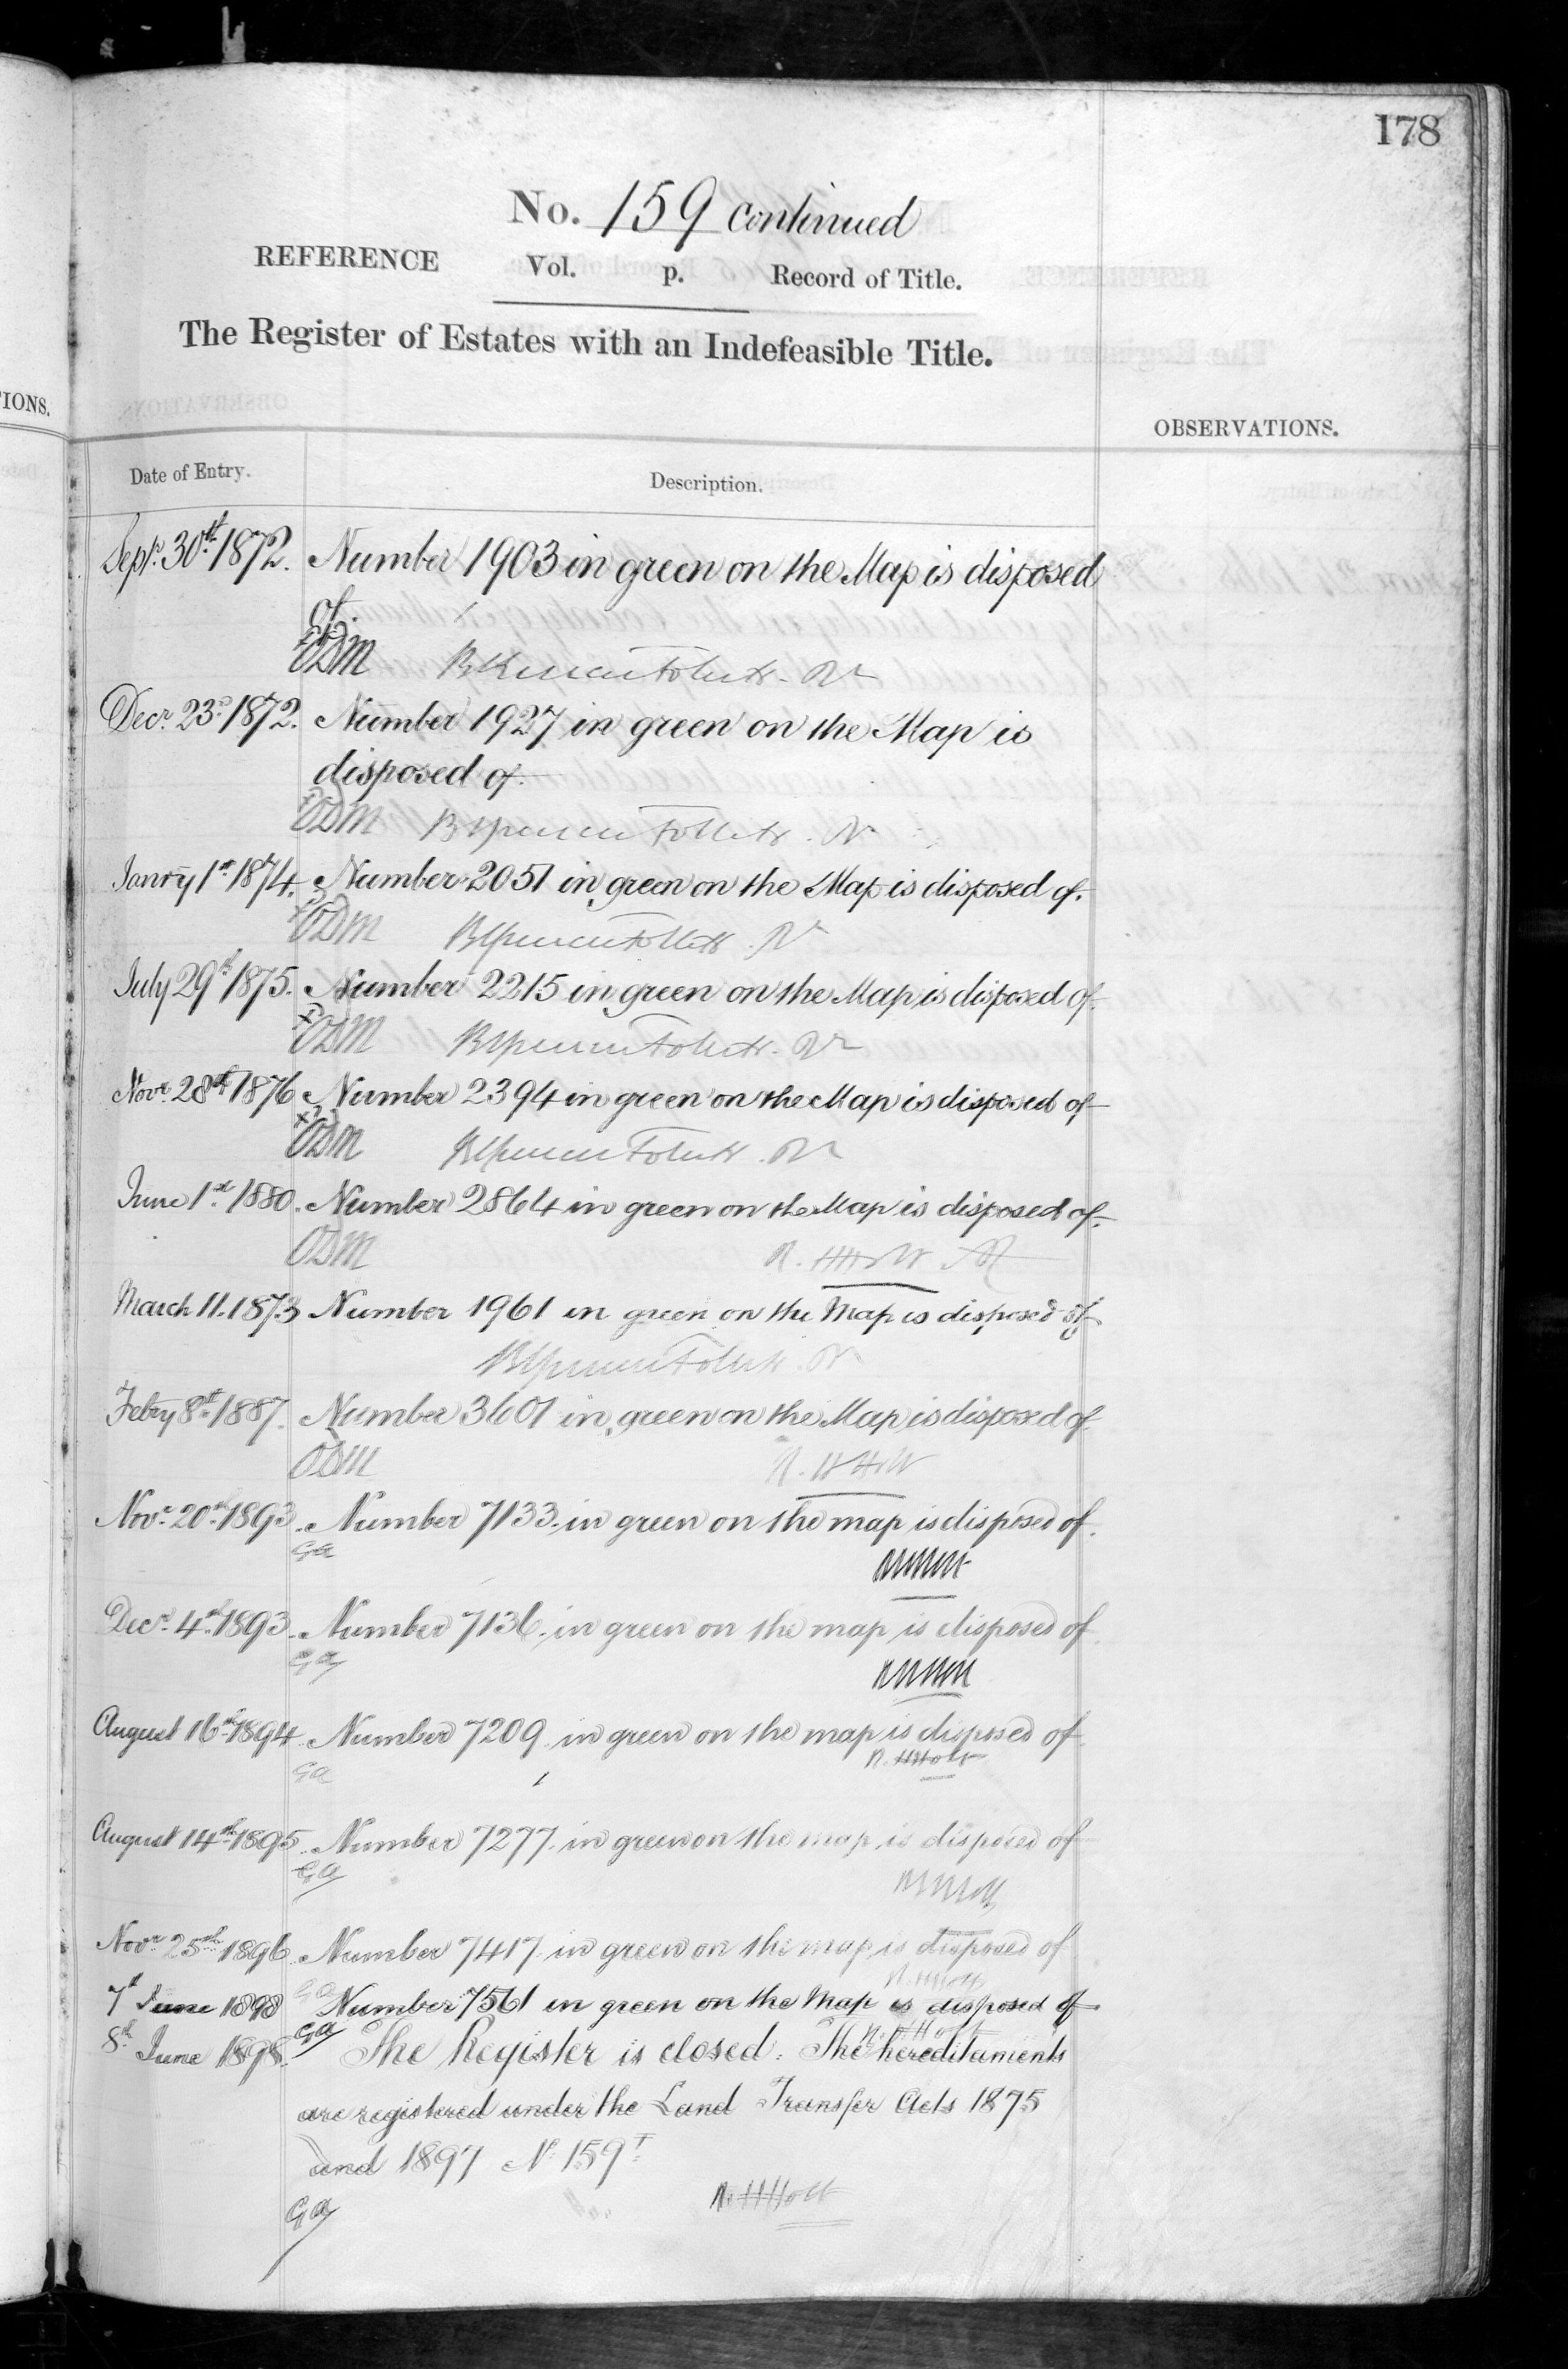 178
No. 159 continued
REFERENCE Vol. p. Record of Title.
The Register of Estates with an Indefeasible Title.
IONS.
OBSERVATIONS.
Date of Entry. Description.
Sepr. 30th 1872. Number 1903 in green on the Map is disposed
of.
ODM
Decr. 23d 1872. Number 1927 in green on the Map is
disposed of
ODM
Janry 1st 1874. Number 2051 in green on the Map is disposed of.
ODM
July 29th 1875. Number 2215 in green on the Map is disposed of.
ODM
Novr. 28th 1876 Number 2394 in green on the Map is disposed of
ODM
June 1st 1880. Number 2864 in green on the Map is disposed of.
ODM R. H Holt AR
March 11. 1873 Number 1961 in green on the Map is disposed of
Febry 8th 1887. Number 3601 in green on the Map is disposed of
ODM R. H Holt
Novr. 20th 1893. Number 7133. in green on the map is disposed of.
GA
Decr. 4th 1893. Number 7136. in green on the map is disposed of
GA
August 16th 1894. Number 7209. in green on the map is disposed of
GA R. H Holt
August 14th 1895. Number 7277. in green on the map is disposed of
GA
Novr. 25th 1896. Number 7417. in green on the map is disposed of
GA R. H Holt
7th June 1898 Number 7561 in green on the Map is disposed of
GA R. H Holt
8th June 1898. The Register is closed. The hereditaments
are registered under the Land Transfer Acts 1875
and 1897 No. 159 T
R. H Holt
GA